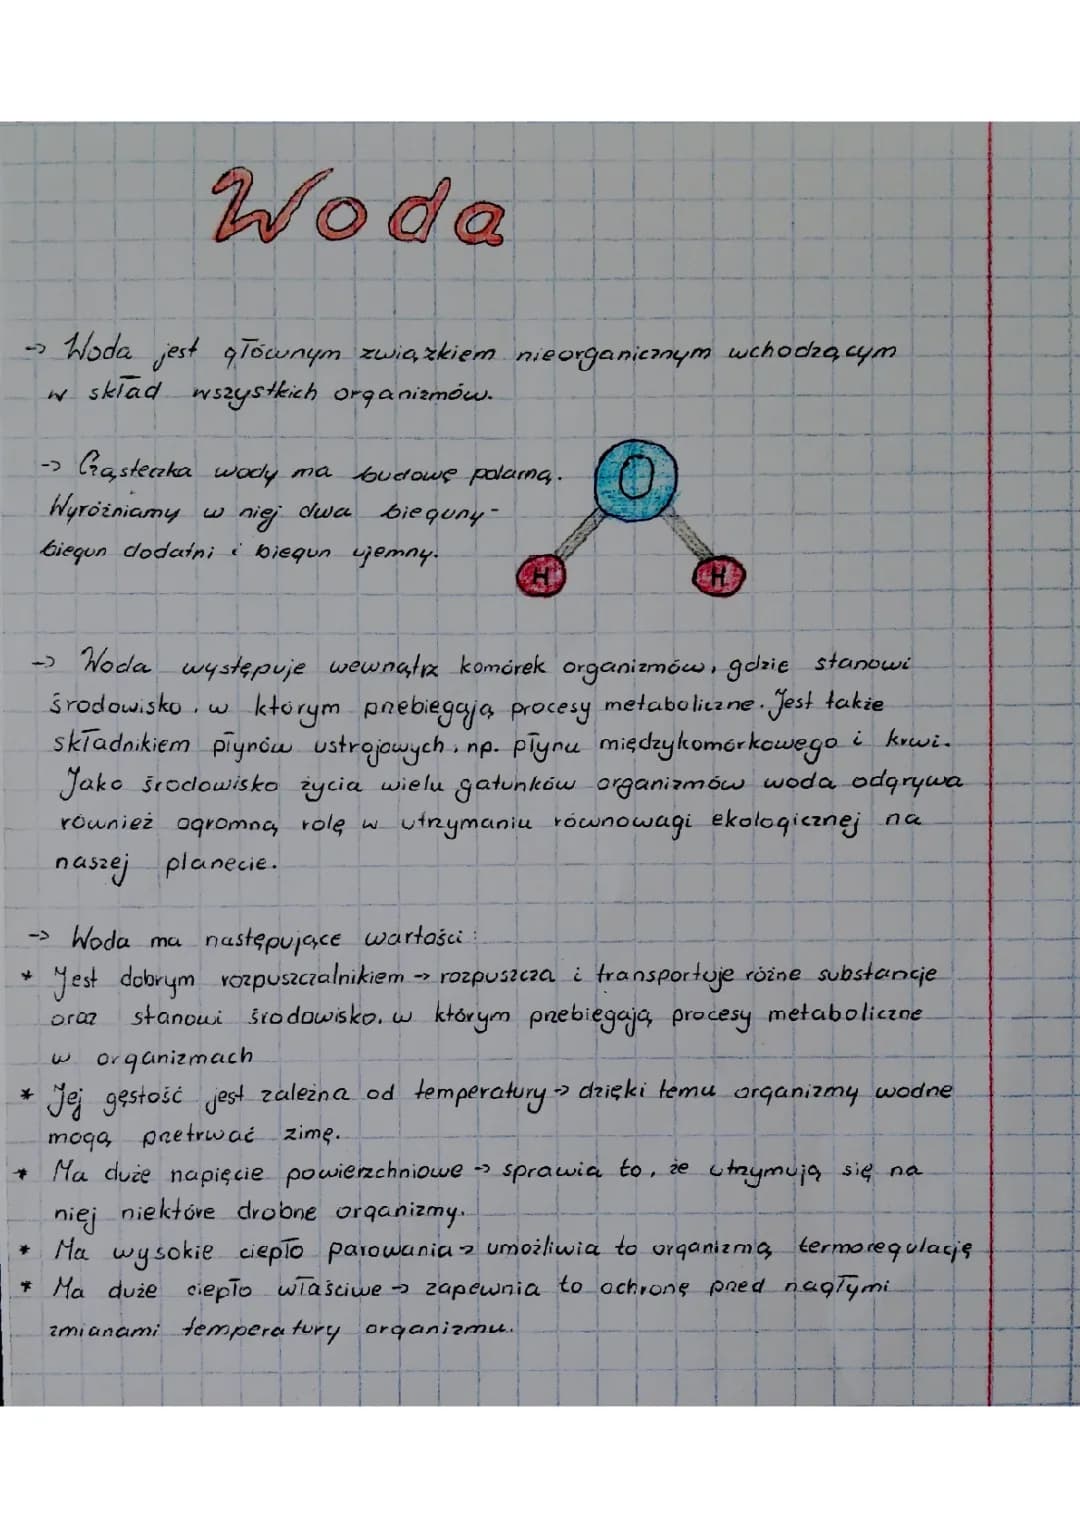 Woda
-> Woda jest głównym związkiem nieorganicznym wchodzącym
w skład wszystkich organizmów.
-> Cząsteczka wody ma budowę polarną.
Wyróżniamy w niej dwa bieguny-
biegun dodatni i biegun ujemny.
O
H H
-> Woda występuje wewnątrz komórek organizmów, gdzie stanowi
środowisko, w którym przebiegają procesy metaboliczne. Jest także
składnikiem płynów ustrojowych, np. płynu międzykomórkowego i krwi.
Jako środowisko życia wielu gatunków organizmów woda odgrywa
również ogromną rolę w utrzymaniu równowagi ekologicznej na
naszej planecie.
-> Woda ma następujące wartości:
* Jest dobrym rozpuszczalnikiem -> rozpuszcza i transportuje różne substancje
oraz stanowi środowisko, w którym przebiegają procesy metaboliczne
w organizmach
* Jej gęstość jest zależna od temperatury -> dzięki temu organizmy wodne
mogą przetrwać zimę.
* Ma duże napięcie powierzchniowe -> sprawia to, że utrzymują się na
niej niektóre drobne organizmy.
* Ma wysokie ciepło parowania -> umożliwia to organizmą termoregulację
* Ma duże ciepło właściwe -> zapewnia to ochronę przed nagłymi
zmianami temperatury organizmu.